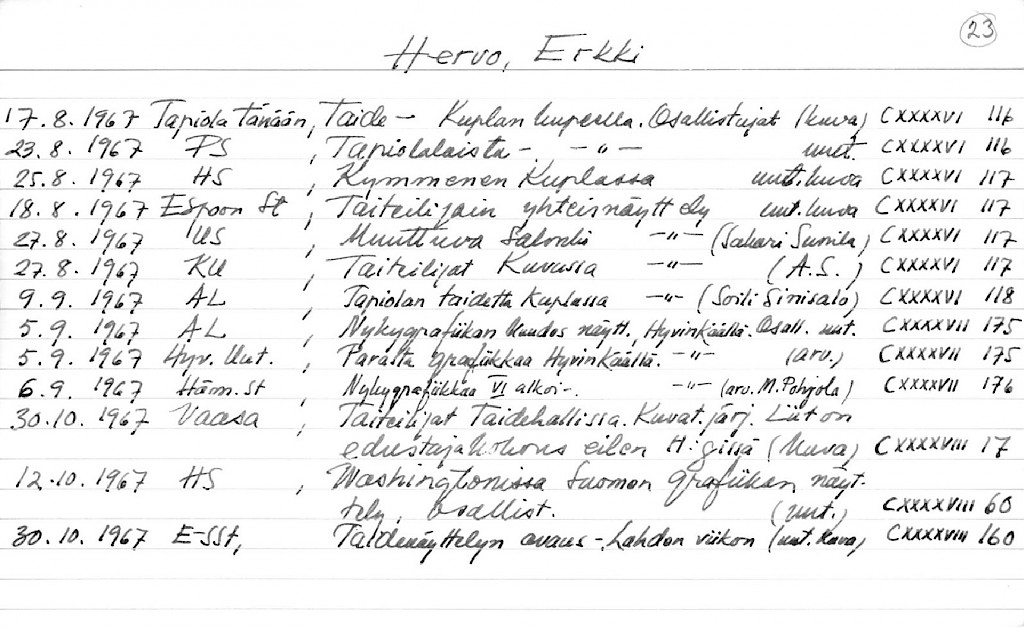 23
Hervo, Erkki
17.8.1967 Tapiola tänään, Taide - Kuplan kupeella. Osallistujat (kuva) CXXXXVI 116
23.8.1967 PS , Tapiolalaista - . -"- uut. CXXXXVI 116
25.8.1967 HS , Kymmenen Kuplassa uut. kuva CXXXXVI 117
18.8.1967 Espoon St , Taiteilijain yhteisnäyttely uut. kuva CXXXXVI 117
27.8.1967 US , Muuttuva Salonki -"- (Sakari Sunila) CXXXXVI 117
27.8.1967 KU , Taiteilijat Kuvussa -"- (A.S.) CXXXXVI 117
9.9.1967 AL , Tapiolan taidetta Kuplassa -"- (Soili Sinisalo) CXXXXVI 118
5.9.1967 AL , Nykygrafiikan kuudes näytt., Hyvinkäällä. Osall. uut. CXXXXVII 175
5.9.1967 Hyv. Uut. , Parasta grafiikkaa Hyvinkäällä. -"- (arv.) CXXXXVII 175
6.9.1967 Häm. St , Nykygrafiikkaa VI alkoi-. -"- (arv. M. Pohjola) CXXXXVII 176
30.10.1967 Vaasa , Taiteilijat Taidehallissa. Kuvat. järj. Liiton
edustajakokous eilen H:gissä (kuva) CXXXXVIII 17
12.10.1967 HS , Washingtonissa Suomen grafiikan näyt-
tely, osallist. (uut.) CXXXXVIII 60
30.10.1967 E-SSt, Taidenäyttelyn avaus - Lahden viikon (uut. kuva) CXXXXVIII 160